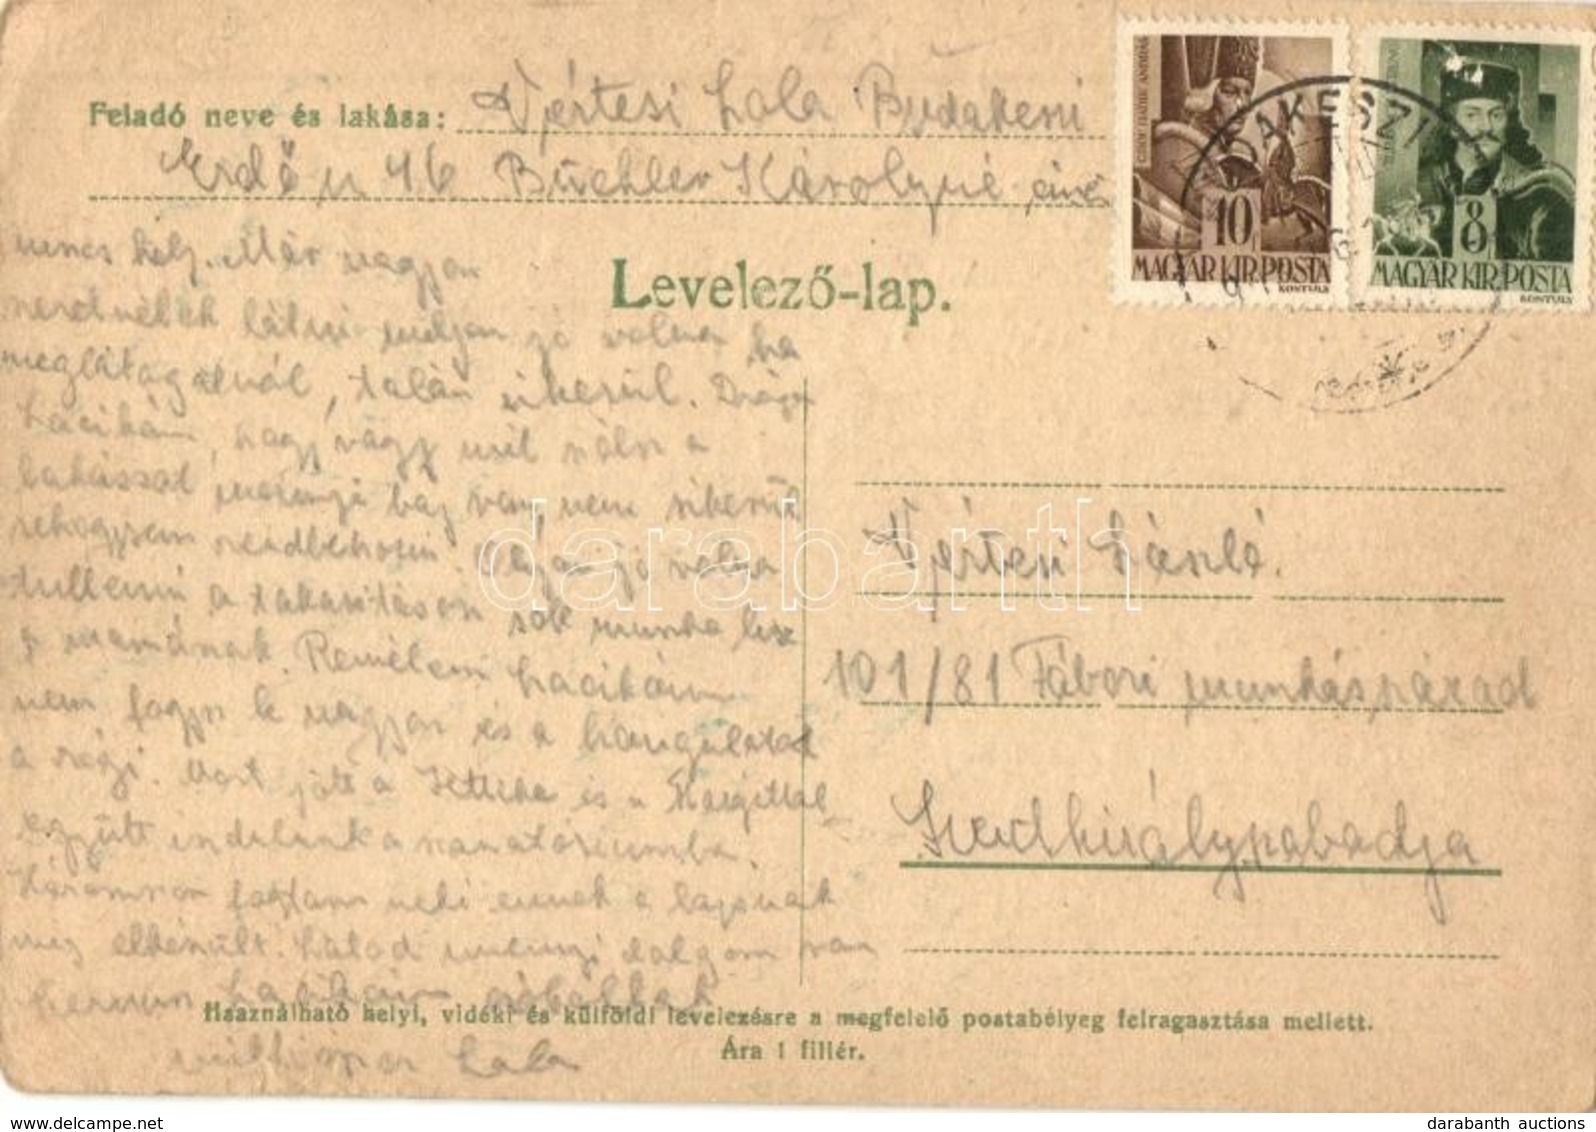 Feladó neve és lakása: Vértesi Lala Budakeszi
Erdő u 46 Büchler Károlyné
Levelező-lap.
CZIOR HADIK ANDRÁS
10
MAGYAR KIR. POSTA
KONTULY
8
MAGYAR KIR. POSTA
KONTULY
BUDAKESZI
nincs hely. Már nagyon
szeretnélek látni milyen jó volna ha
meglátogatnál, talán sikerül. Drága
Lacikám, hogy vagy mit
lakással mennyi baj van, nem sikerül
sehogysem rendbehozni. Olyan jó volna
túllenni a takarításon sok munka lesz
a mamának. Remélem Lacikám
nem fogysz le nagyon és a hangulatod
a régi. Most jött a és a Margittal
együtt indulunk a szanatóriumba.
Háromszor fogtam neki ennek a lapnak
míg elkészült. Látod mennyi dolgom van
Lacikám
milliószor Lala
Vértesi László.
101/81 Tábori munkásszázad
Szentkirályszabadja
Használható helyi, vidéki és külföldi levelezésre a megfelelő postabélyeg felragasztása mellett.
Ára 1 fillér.
darabanth
www.delcampe.net
darabanth auctions